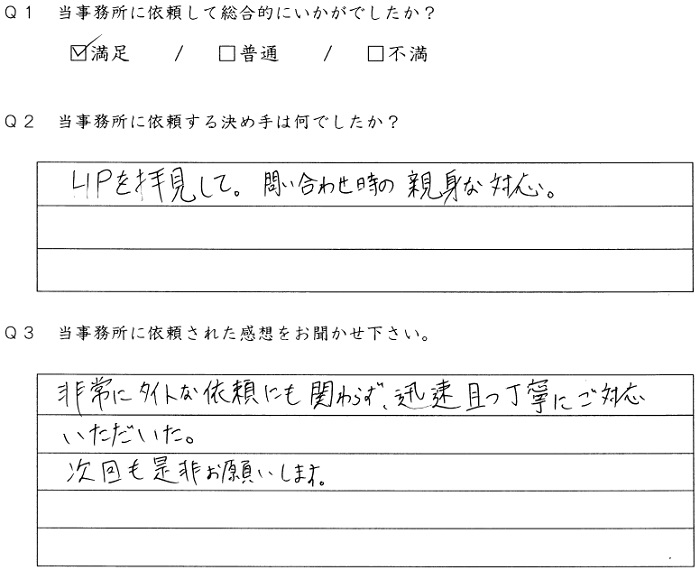 Q1 当事務所に依頼して総合的にいかがでしたか？
☑満足 / □普通 / □不満
Q2 当事務所に依頼する決め手は何でしたか？
HPを拝見して。問い合わせ時の親身な対応。
Q3 当事務所に依頼された感想をお聞かせ下さい。
非常にタイトな依頼にも関わらず、迅速且つ丁寧にご対応
いただいた。
次回も是非お願いします。